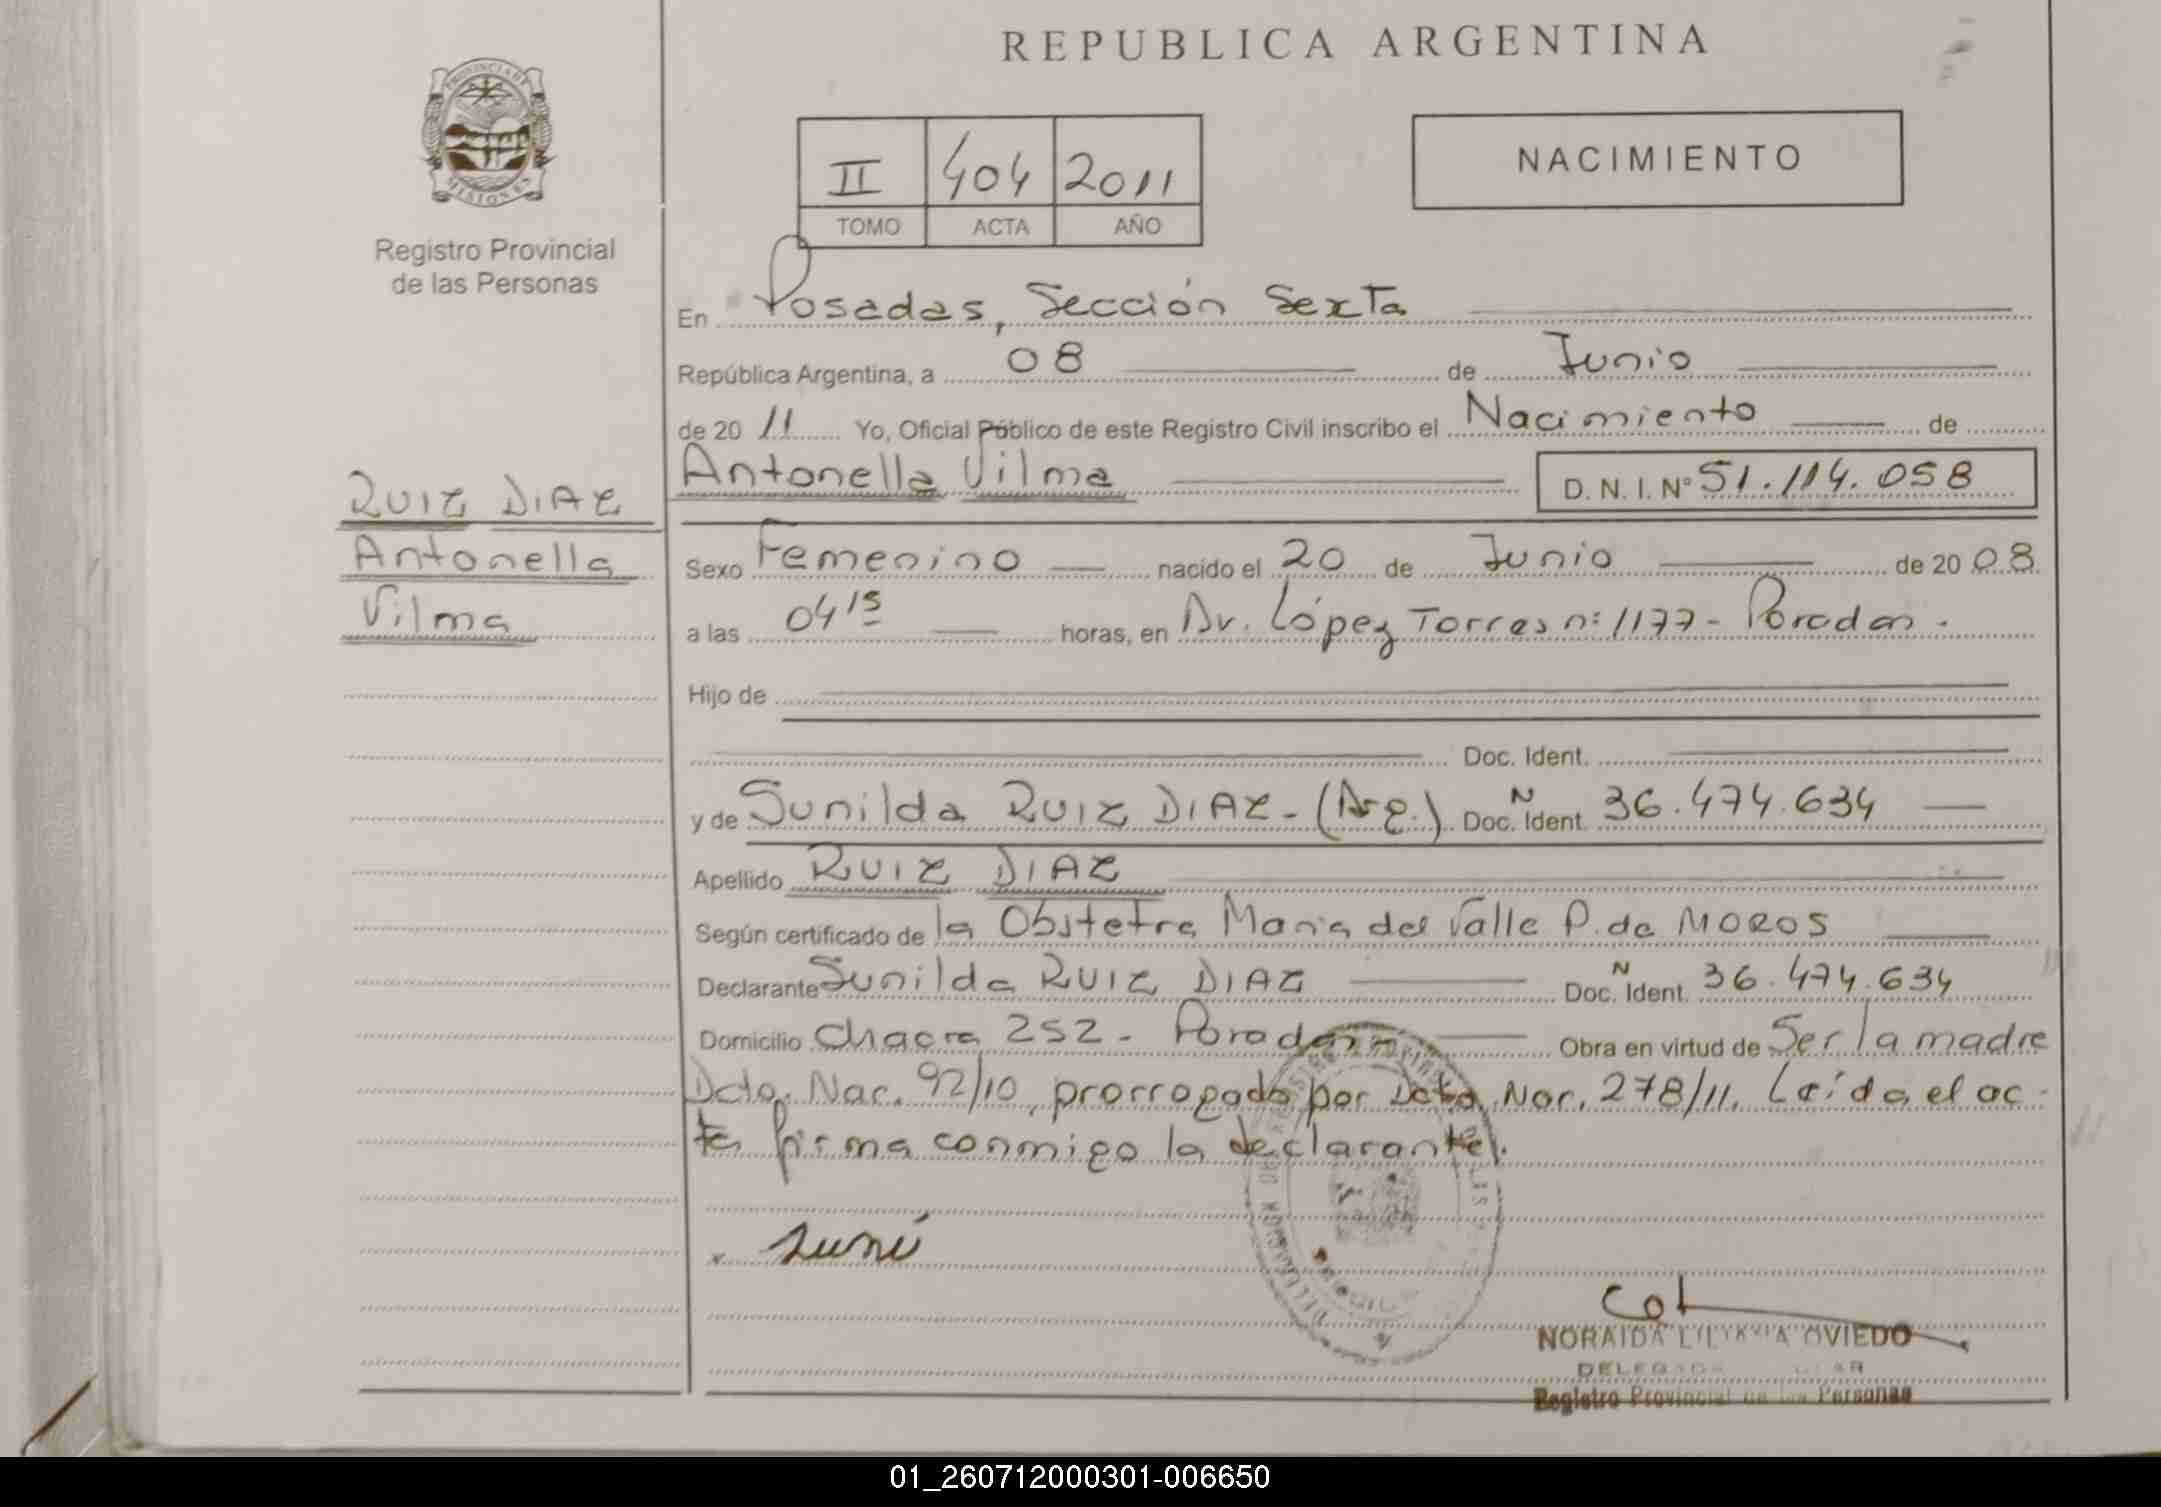 REPUBLICA ARGENTINA
PROVINCIA DE
MISIONES
Registro Provincial
de las Personas
II 404 2011
TOMO ACTA AÑO
NACIMIENTO
En Posadas, Sección Sexta
República Argentina, a 08 de Junio
de 20 11 Yo, Oficial Público de este Registro Civil inscribo el Nacimiento de
Antonella Vilma D. N. I. Nº 51.114.058
RUIZ DIAZ
Antonella
Vilma
Sexo Femenino nacido el 20 de Junio de 20 08
a las 04 15 horas, en Av. López Torres nº 1177 - Posadas.
Hijo de
Doc. Ident.
y de Sunilda RUIZ DIAZ - (Arg.) Doc. N Ident. 36.474.634
Apellido RUIZ DIAZ
Según certificado de la Obstetra Maria del Valle P. de MOROS
Declarante Sunilda RUIZ DIAZ Doc. N Ident. 36.474.634
Domicilio Chacra 252 - Posadas Obra en virtud de Ser la madre
Dcto. Nac. 92/10, prorrogado por Dcto. Nac. 278/11. Leída el ac-
ta firma conmigo la declarante.
x
NORAIDA LILIANA OVIEDO
Registro Provincial de las Personas
01_260712000301-006650